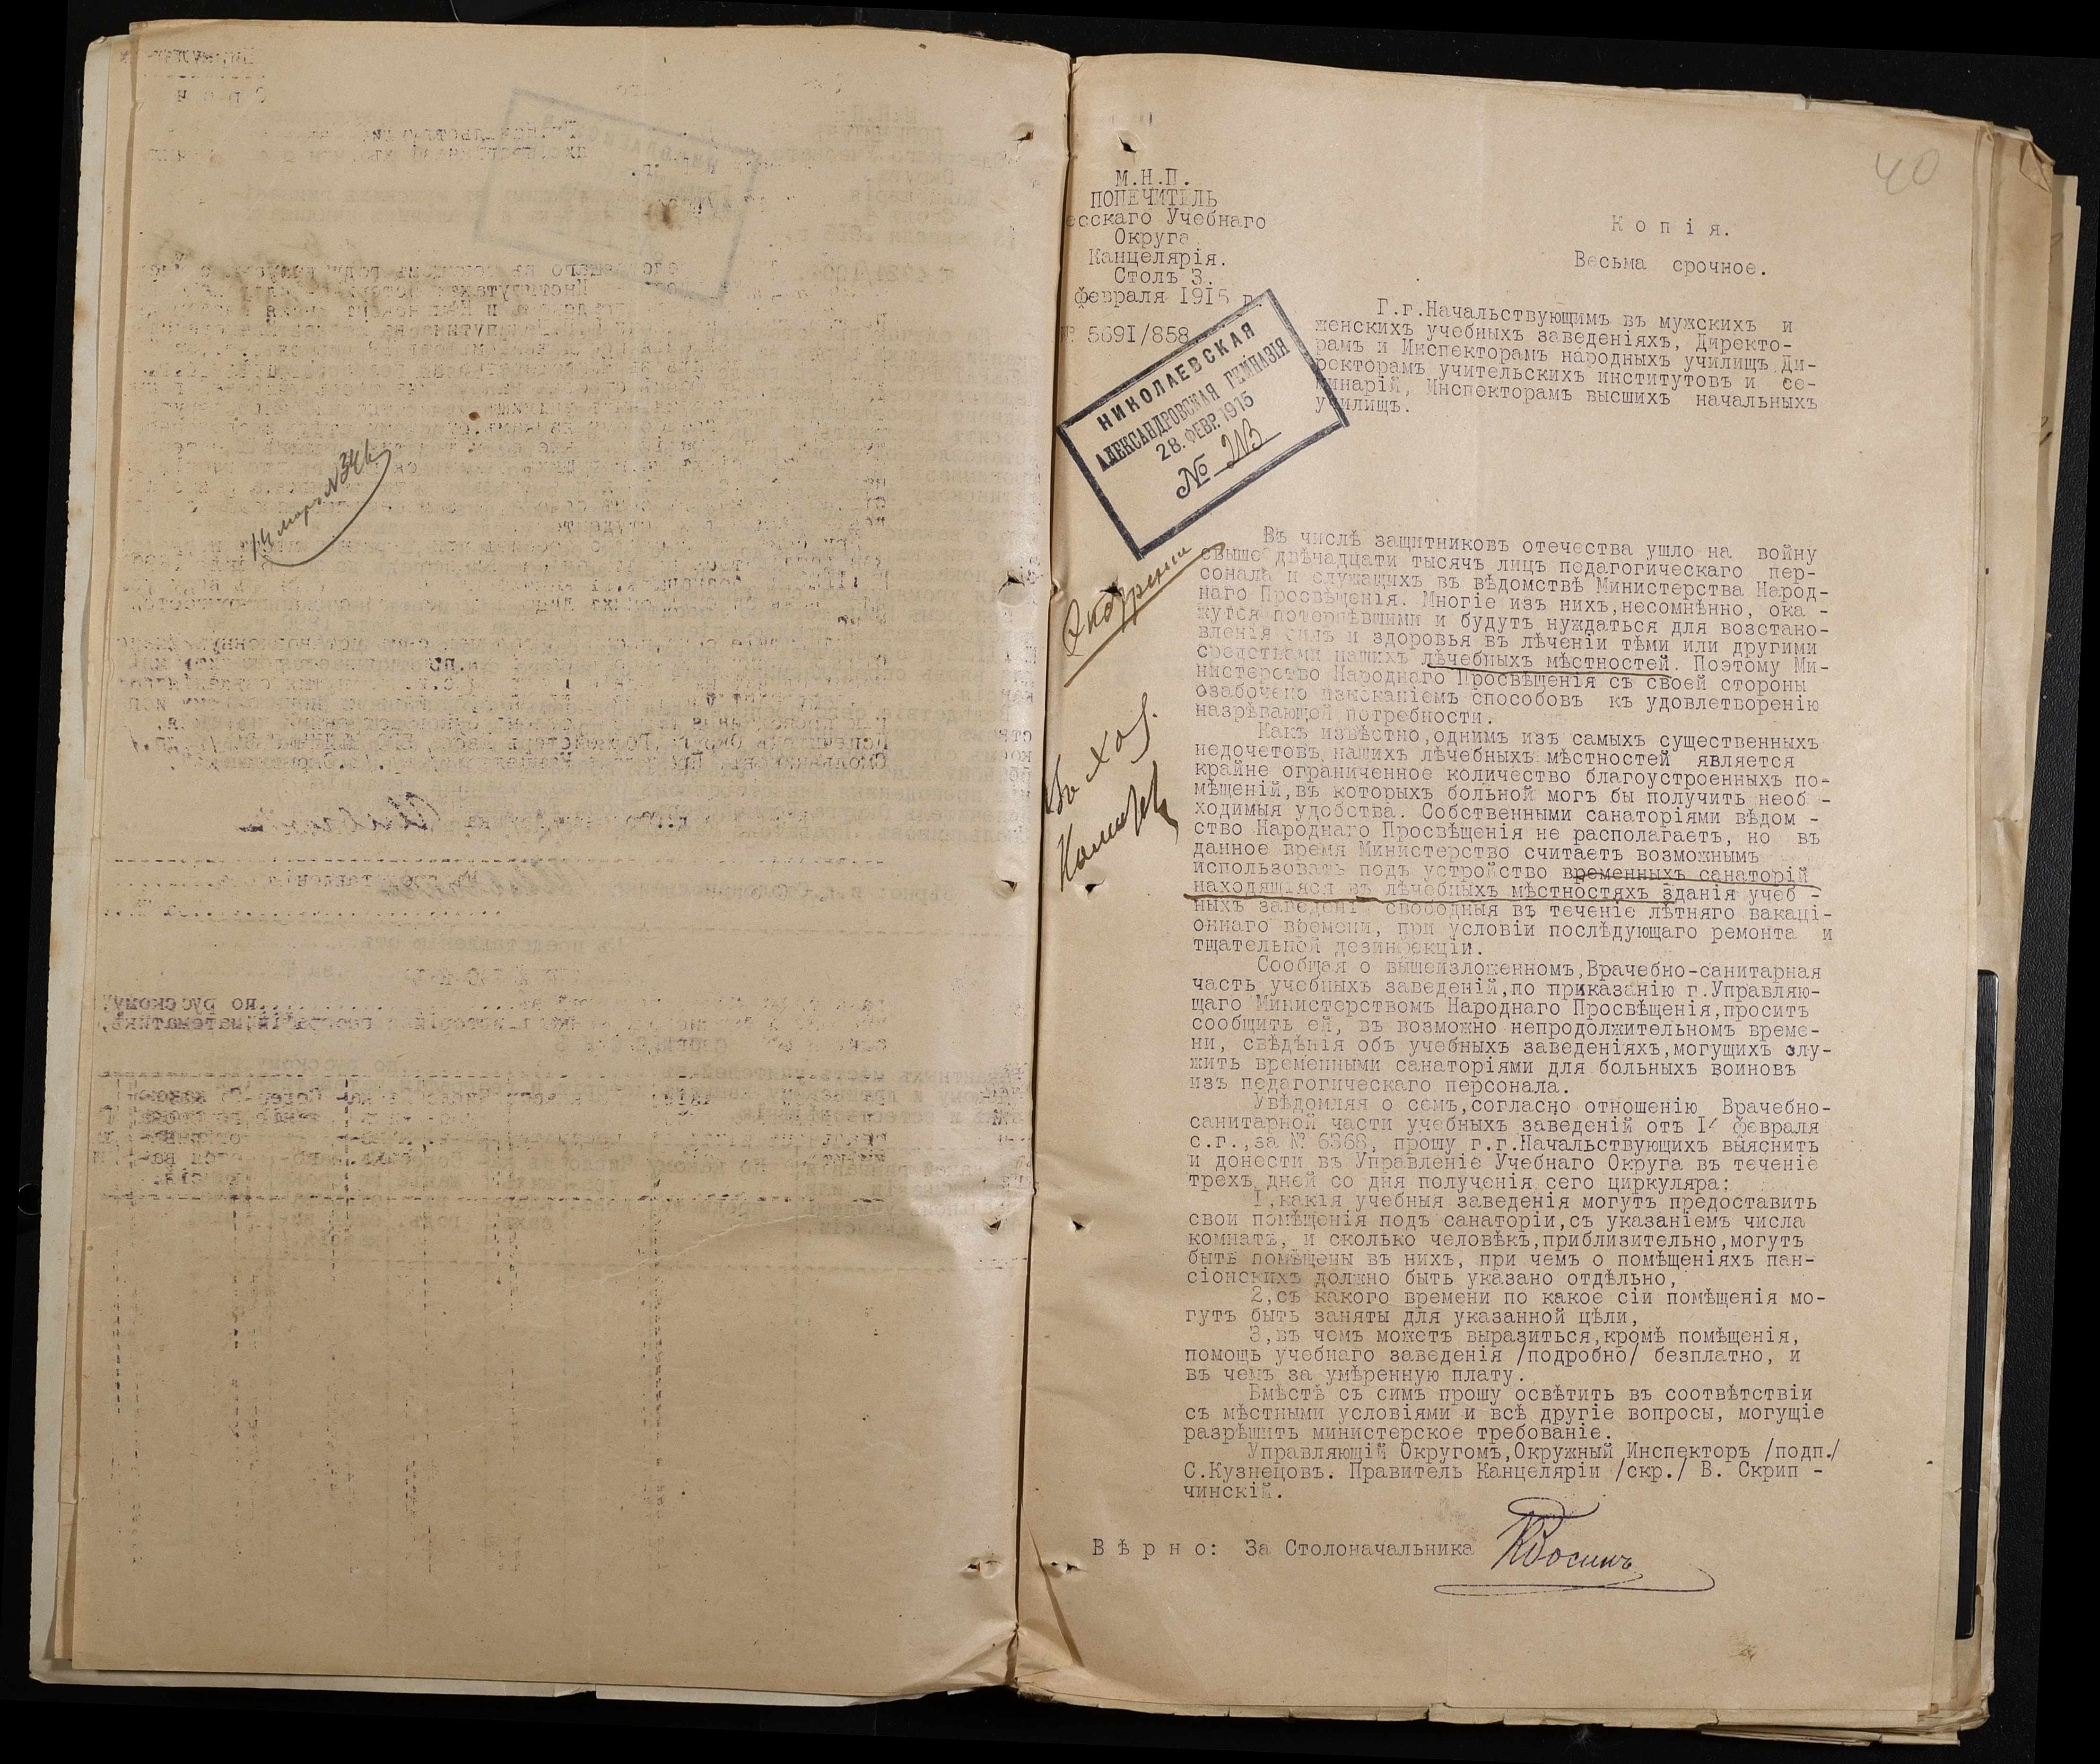 14 марта N 344
40
М.Н.П.
ПОПЕЧИТЕЛЬ
есскаго Учебнаго
Округа
Канцелярія.
Столъ 3.
февраля 1915 г.
№ 569I/858
К о п і я.
Весьма срочное.
Г.г.Начальствующимъ въ мужскихъ и
женскихъ учебныхъ заведеніяхъ, Директо-
рамъ и Инспекторамъ народныхъ училищъ,Ди-
ректорамъ учительскихъ институтовъ и се-
минарій, Инспекторамъ высшихъ начальныхъ
училищъ.
НИКОЛАЕВСКАЯ
АЛЕКСАНДРОВСКАЯ ГИМНАЗІЯ
28. ФЕВР. 1915
№ 213
Въ числѣ защитниковъ отечества ушло на войну
свыше двѣнадцати тысячъ лицъ педагогическаго пер-
сонала и служащихъ въ вѣдомствѣ Министерства Народ-
наго Просвѣщенія. Многіе изъ нихъ,несомнѣнно, ока -
жутся потерпѣвшими и будутъ нуждаться для возстано-
вленія силъ и здоровья въ лѣченіи тѣми или другими
средствами нашихъ лѣчебныхъ мѣстностей. Поэтому Ми-
нистерство Народнаго Просвѣщенія съ своей стороны
озабочено изысканіемъ способовъ къ удовлетворенію
назрѣвающей потребности.
Какъ извѣстно,однимъ изъ самыхъ существенныхъ
недочетовъ нашихъ лѣчебныхъ мѣстностей является
крайне ограниченное количество благоустроенныхъ по-
мѣщеній,въ которыхъ больной могъ бы получить необ -
ходимыя удобства. Собственными санаторіями вѣдом -
ство Народнаго Просвѣщенія не располагаетъ, но въ
данное время Министерство считаетъ возможнымъ
использовать подъ устройство временныхъ санаторій
находящіяся въ лѣчебныхъ мѣстностяхъ зданія учеб -
ныхъ заведеній свободныя въ теченіе лѣтняго вакаці-
оннаго времени, при условіи послѣдующаго ремонта и
тщательной дезинфекціи.
Сообщая о вышеизложенномъ,Врачебно-санитарная
часть учебныхъ заведеній,по приказанію г.Управляю-
щаго Министерствомъ Народнаго Просвѣщенія,проситъ
сообщить ей, въ возможно непродолжительномъ време-
ни, свѣдѣнія объ учебныхъ заведеніяхъ,могущихъ слу-
жить временными санаторіями для больныхъ воиновъ
изъ педагогическаго персонала.
Увѣдомляя о семъ,согласно отношенію Врачебно-
санитарной части учебныхъ заведеній отъ февраля
с.г.,за № 6368, прошу г.г.Начальствующихъ выяснить
и донести въ Управленіе Учебнаго Округа въ теченіе
трехъ дней со дня полученія сего циркуляра:
I,какія учебныя заведенія могутъ предоставить
свои помѣщенія подъ санаторіи,съ указаніемъ числа
комнатъ, и сколько человѣкъ,приблизительно,могутъ
быть помѣщены въ нихъ, при чемъ о помѣщеніяхъ пан-
сіонскихъ должно быть указано отдѣльно,
2,съ какого времени по какое сіи помѣщенія мо-
гутъ быть заняты для указанной цѣли,
3,въ чемъ можетъ выразиться,кромѣ помѣщенія,
помощь учебнаго заведенія /подробно/ безплатно, и
въ чемъ за умѣренную плату.
Вмѣстѣ съ симъ прошу освѣтить въ соотвѣтствіи
съ мѣстными условіями и всѣ другіе вопросы, могущіе
разрѣшить министерское требованіе.
Управляющій Округомъ,Окружный Инспекторъ /подп./
С.Кузнецовъ. Правитель Канцеляріи /скр./ В. Скрип -
чинскій.
В ѣ р н о: За Столоначальника